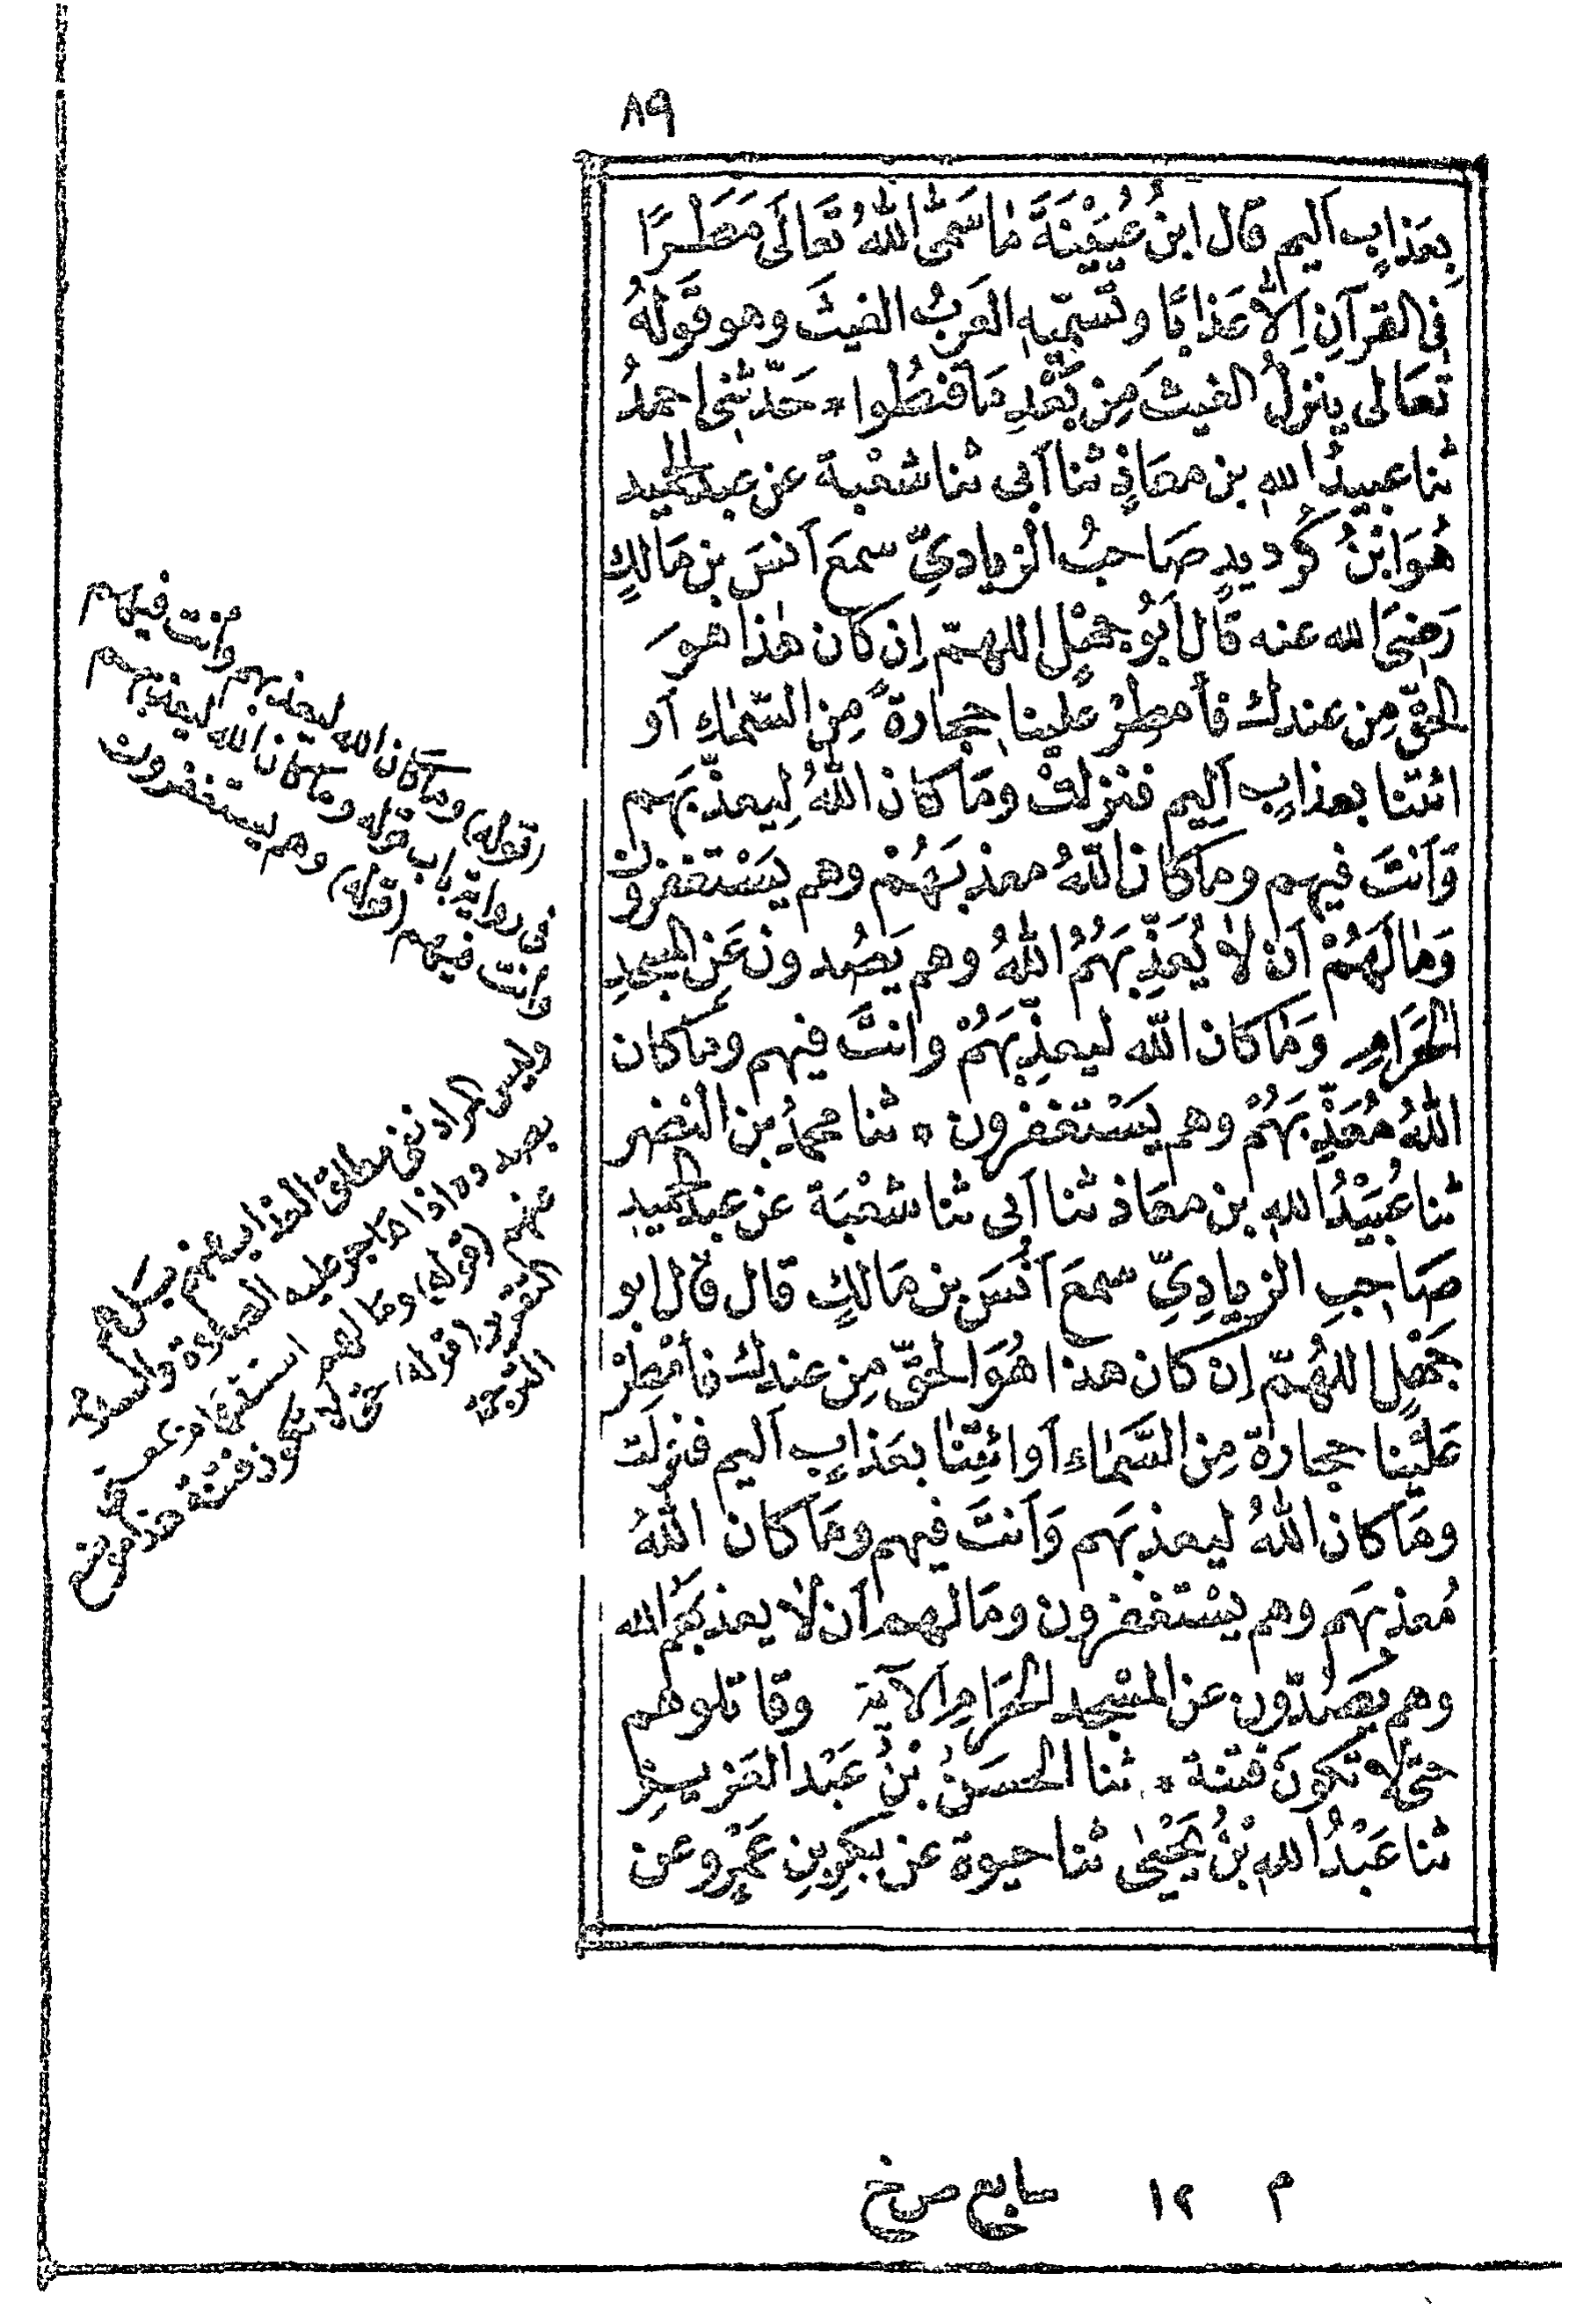 ٨٩
بِعَذابٍ أَليم قال ابنُ عُيَيْنَةَ مَا سَمَّى اللهُ تَعَالَى مَطَرًا
فِي القرآنِ إِلاَّ عَذابًا وتُسَمِّيهِ العَرَبُ الغيثَ وهو قَولُهُ
تَعَالى ينزلُ الغيثَ مِن بَعْدِ مَا قنطُوا * حَدَّثنِي احمدُ
ثنا عبيدُ اللهِ بن معَاذٍ ثنا أبى ثنا شعْبة عن عبد الحميد
هُوَ ابْنُ كُرديدٍ صَاحبُ الزياديِّ سمعَ أنسَ بن مَالكٍ
رَضِيَ الله عنه قال أبُو جهْلٍ اللهمّ إن كَان هٰذا هوَ
الحقَّ مِن عندك فأمطِرْ علَينا حجارةً مِن السّماءِ أو
ائتنا بعذابٍ أليم فنزلتْ ومَا كان اللهُ لِيعذّبَهم
وَأنتَ فيهم ومَا كان اللهُ معذبَهُمْ وهم يَسْتغفرون
وَمَا لَهَمُْ أن لا يُعَذِّبَهُمُ اللهُ وهم يَصُدون عَن المسجدِ
الحَرَامِ وَمَا كان الله ليعذِّبَهُمْ وانتَ فيهم ومَا كان
اللهُ مُعَذِّبَهُمْ وهم يَسْتغفرون * ثنا محمدُ بن النضر
ثنا عُبَيْدُ اللهِ بن معَاذ ثنا أبى ثنا شعْبَة عن عبد الحميدِ
صَاحبِ الزيادِيِّ سمعَ أنَسَ بن مَالكٍ قال قال ابو
جَهْلٍ اللهُمّ إن كان هذا هُوَ الحقَّ مِن عندك فأمْطِرْ
عَلَيْنا حجارة مِن السَّمَاء أوائتِنا بعَذابٍ أليم فنزلت
ومَا كان اللهُ ليعذبَهم وَأنتَ فيهم ومَا كان اللهُ
مُعذبَهم وهم يسْتغفرون ومَا لهم أن لا يعذبَهُم الله
وهم يَصُدّون عن المسْجد الحَرَامِ الآية وقاتلوهم
حتى لا تكونَ فتنة * ثنا الحسَنُ بْنُ عَبْد العَزيزِ
ثنا عَبْدُ اللهِ بْنُ يَحْيَى ثنا حيوة عن بكرِ بنِ عَمْرٍو عن
(قوله) وما كان الله ليعذبهم وأنت فيهم
فى رواية باب قوله وما كان الله ليعذبهم
وأنت فيهم (قوله) وهم يستغفرون
وليس المراد نفى مطلق العذاب عنهم بل هم
بصدده اذا هاجر عليه الصلاة والسلام
عنهم (قوله) وما لهم استفهام
التقرير (قوله) حتى لا تكون فتنة
الترجمة
م ١٢ سابع ص خ